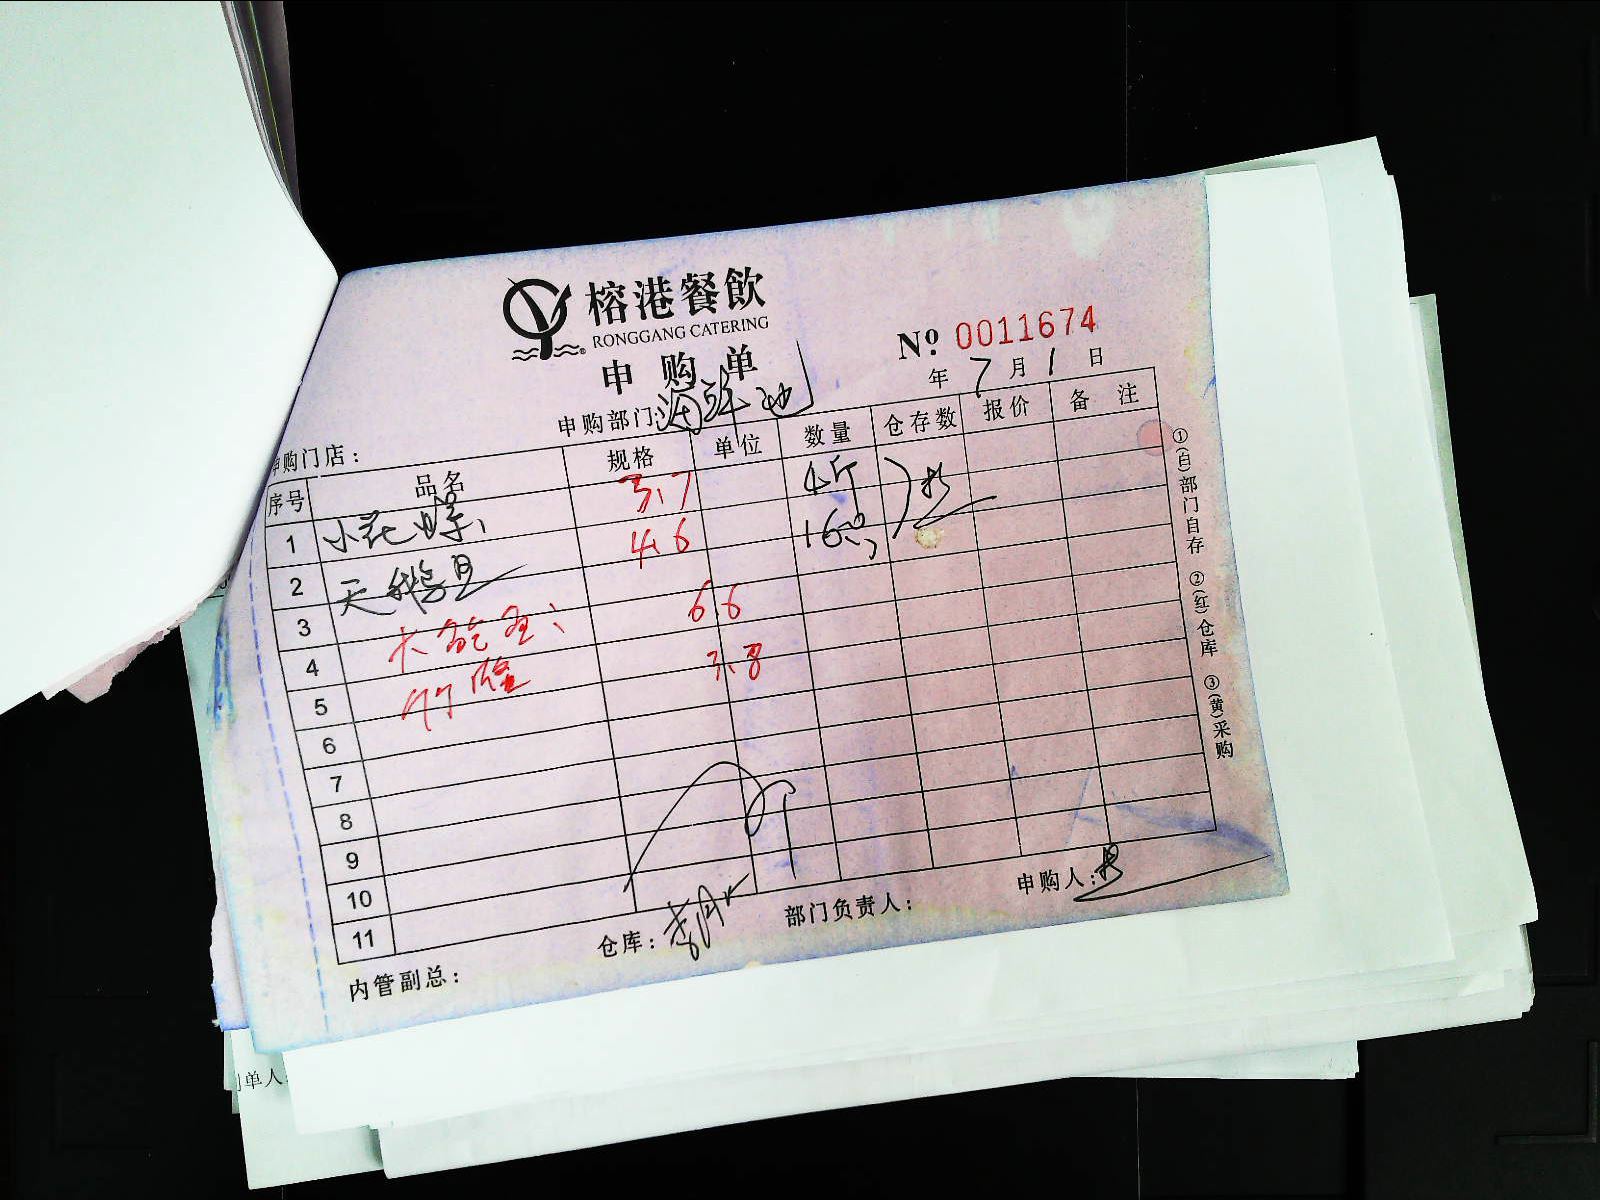 榕港餐飲
RONGGANG CATERING
申购单
№ 0011674
年 7 月 1 日
申购部门: 海鲜池
申购门店：
序号 品名 规格 单位 数量 仓存数 报价 备注
1 小花螺 3.7 4斤
2 天鹅旦 4.6 16只
3 6.6
4 3.8
5
6
7
8
9
10
11
①(自)部门自存 ②(红)仓库 ③(黄)采购
内管副总：
仓库：
部门负责人：
申购人：
单人